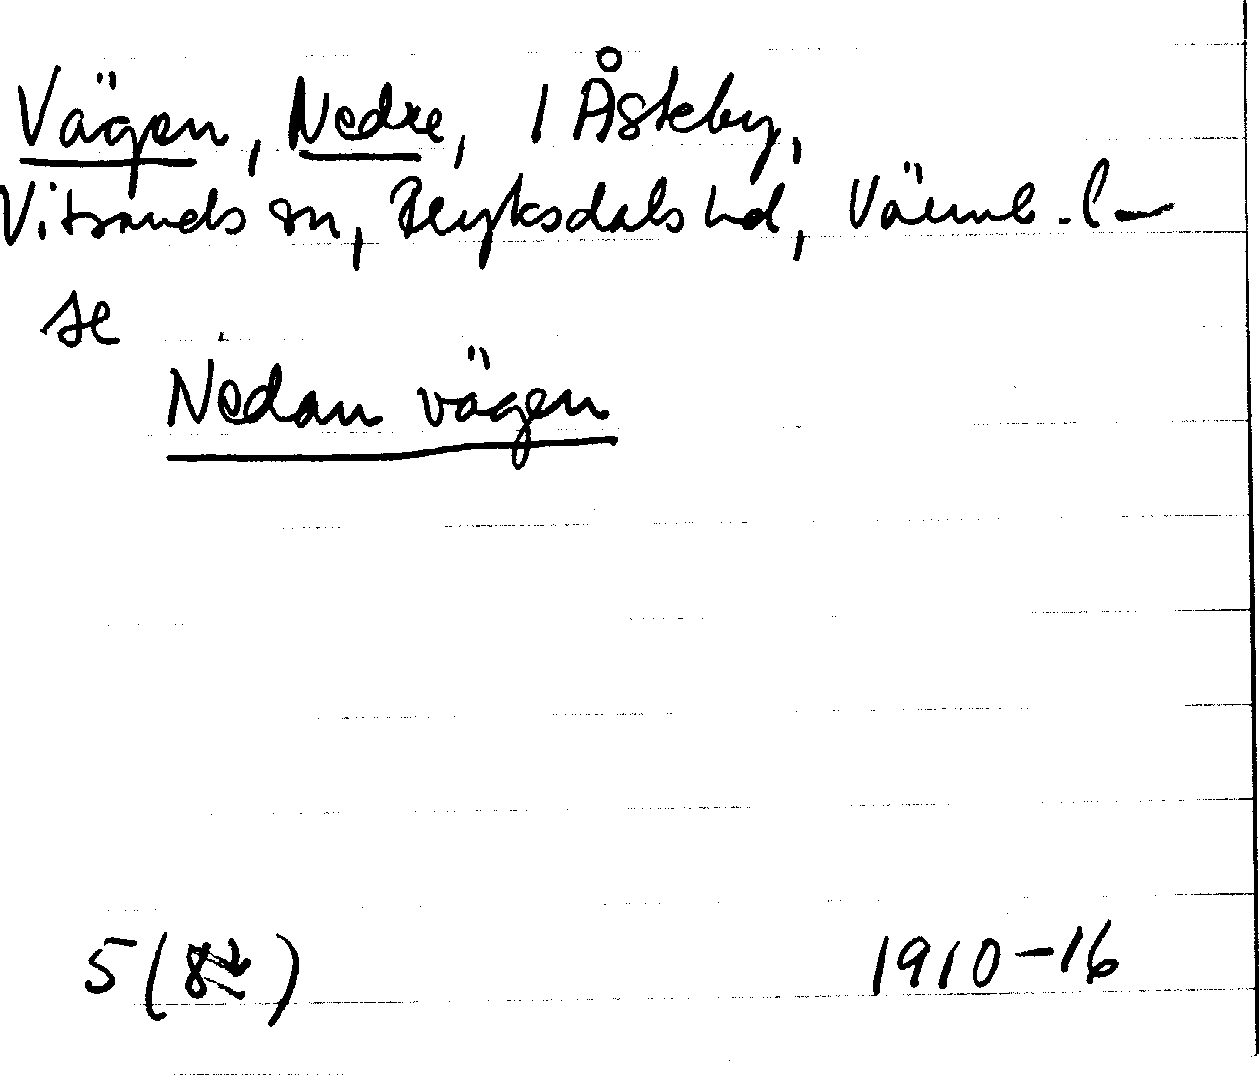 Vägen, Nedre, 1 Åsteby,
Vitsands sn, Fryksdals hd, Värml. l
se
Nedan vägen
5 ( ) 1910-16